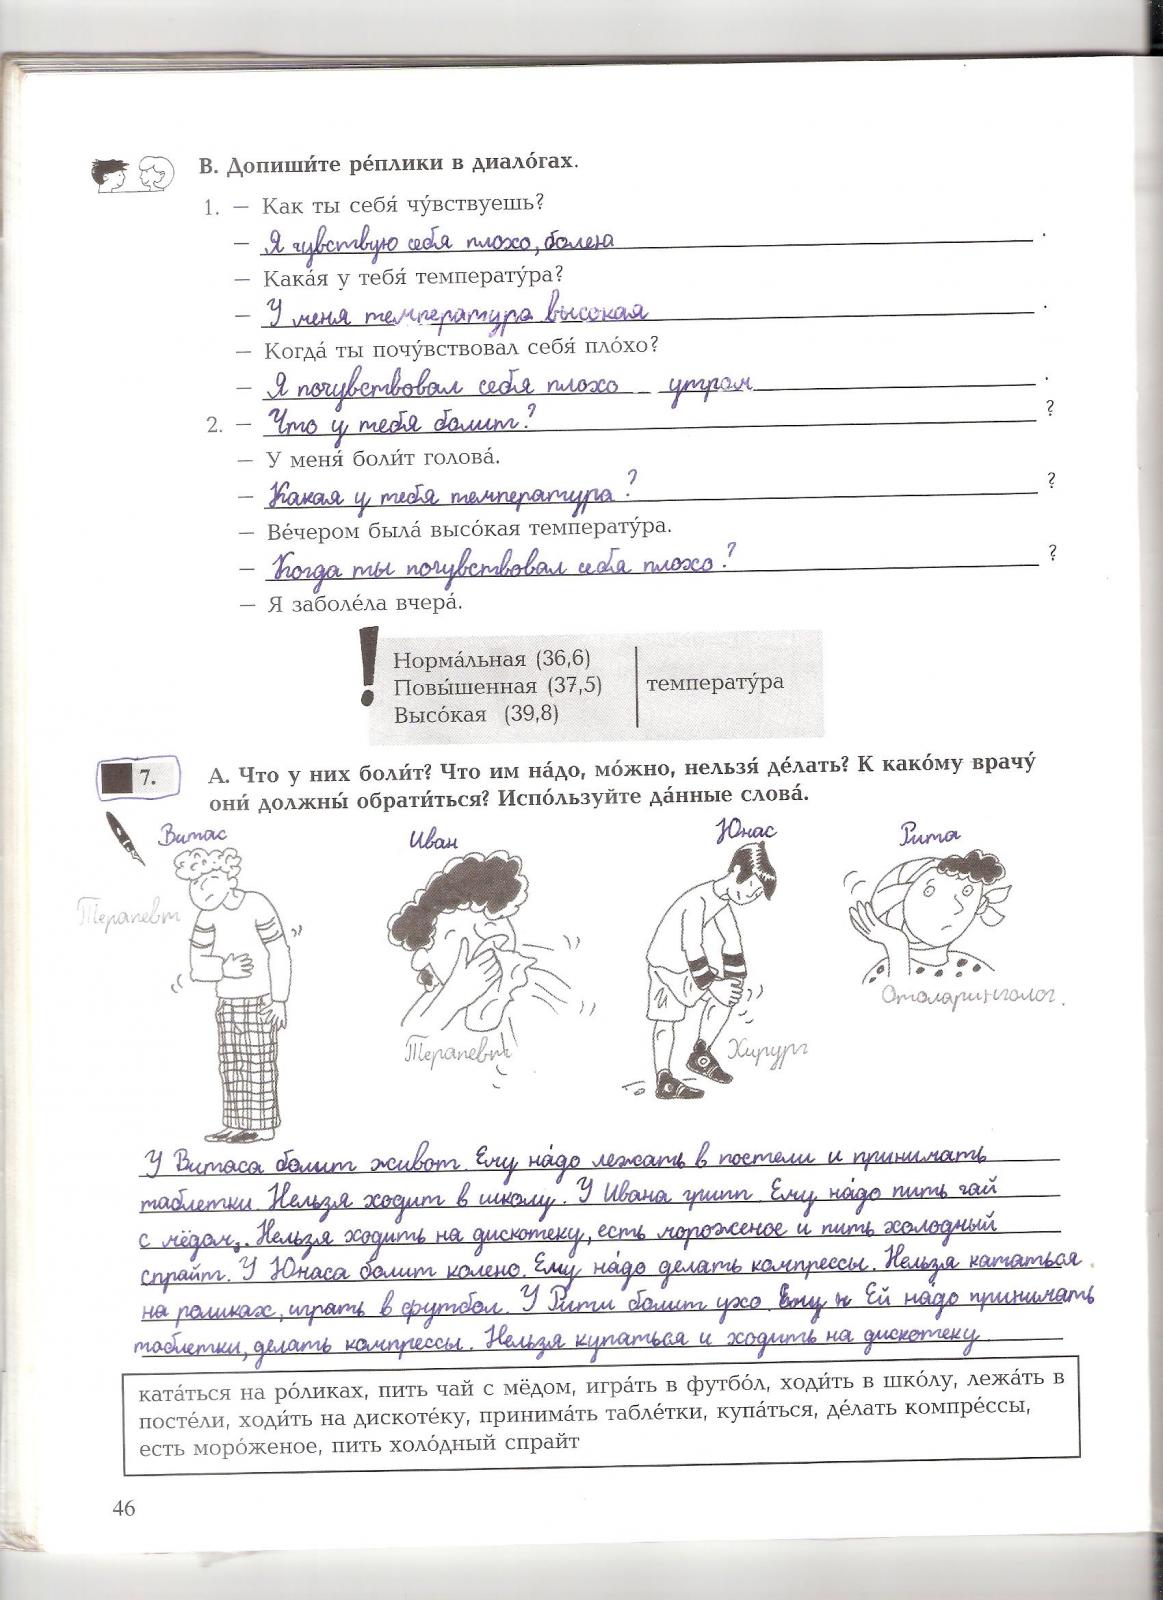 В. Допиши́те ре́плики в диало́гах.
1. — Как ты себя́ чу́вствуешь?
— Я чувствую себя плохо, болею.
— Кака́я у тебя́ температу́ра?
— У меня температура высокая.
— Когда́ ты почу́вствовал себя́ пло́хо?
— Я почувствовал себя плохо утром.
2. — Что у тебя болит? ?
— У меня́ боли́т голова́.
— Какая у тебя температура? ?
— Ве́чером была́ высо́кая температу́ра.
— Когда ты почувствовал себя плохо? ?
— Я заболе́ла вчера́.
! Норма́льная (36,6)
Повы́шенная (37,5) температу́ра
Высо́кая (39,8)
7. А. Что у них боли́т? Что им на́до, мо́жно, нельзя́ де́лать? К како́му врачу́
они́ должны́ обрати́ться? Испо́льзуйте да́нные слова́.
Витас Иван Юнас Рита
Терапевт
Отоларинголог.
Терапевт Хирург
У Витаса болит живот. Ему на́до лежать в постели и принимать
таблетки. Нельзя ходит в школу. У Ивана грипп. Ему на́до пить чай
с мёдом. Нельзя ходить на дискотеку, есть мороженое и пить холодный
спрайт. У Юнаса болит колено. Ему на́до делать компрессы. Нельзя кататься
на роликах, играть в футбол. У Риты болит ухо. Ему н Ей на́до принимать
таблетки, делать компрессы. Нельзя купаться и ходить на дискотеку.
ката́ться на ро́ликах, пить чай с мёдом, игра́ть в футбо́л, ходи́ть в шко́лу, лежа́ть в
посте́ли, ходи́ть на дискоте́ку, принима́ть табле́тки, купа́ться, де́лать компре́ссы,
есть моро́женое, пить холо́дный спрайт
46